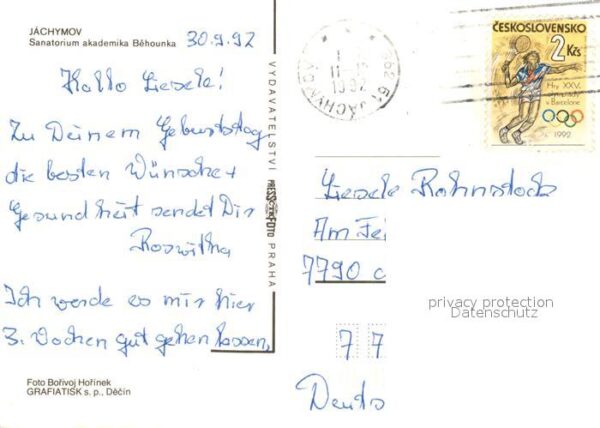 JÁCHYMOV
Sanatorium akademika Běhounka
30.9.92
Hallo Liesele!
Zu Deinem Geburtstag
die besten Wünsche +
Gesundheit sendet Dir
Roswitha
Ich werde es mir hier
3 Wochen gut gehen lassen,
Foto Bořivoj Hořínek
GRAFIATISK s. p., Děčín
VYDAVATELSTVÍ PRESSFOTO PRAHA
1992
362 61 JÁCHYMOV
ČESKOSLOVENSKO
2 Kčs
Hry XXV.
olympiády
v Barceloně
1992
Liesele Rohnstock
Am Fei
7790
privacy protection
Datenschutz
7 7
Deuts